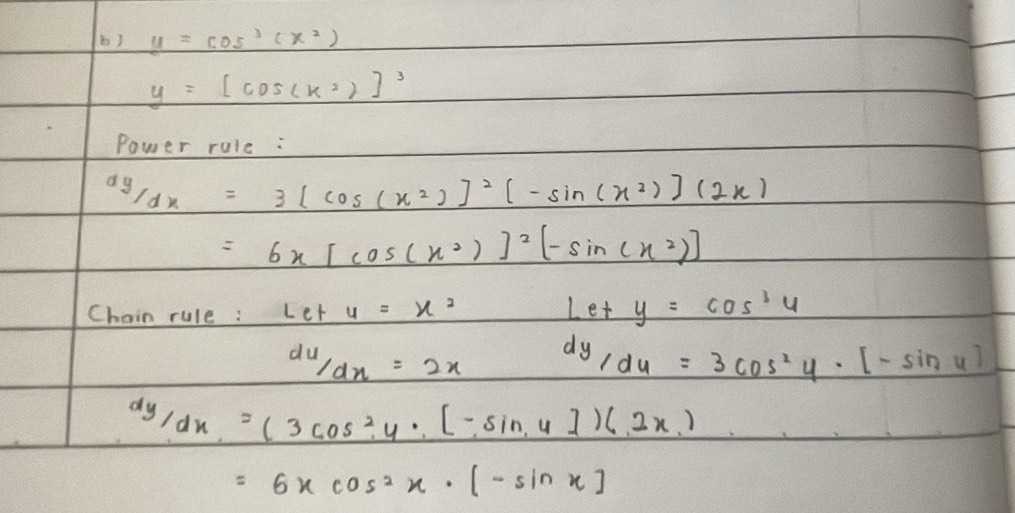 b) y = cos³(x²)
y = [cos(x²)]³
Power rule :
dy/dx = 3[cos(x²)]²[-sin(x²)](2x)
= 6x[cos(x²)]²[-sin(x²)]
Chain rule : Let u = x² Let y = cos³u
du/dx = 2x dy/du = 3cos²u · [-sin u]
dy/dx = (3cos²u · [-sin u])(2x)
= 6x cos²x · [-sin x]